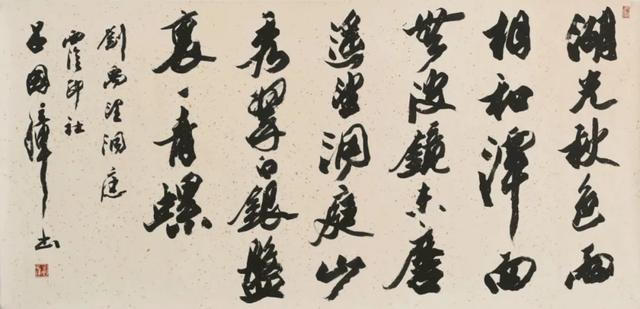 湖光秋色兩
相和潭面
無波鏡未磨
遙望洞庭山
秀翠白銀盤
裏一青螺
劉禹望洞庭
西泠印社
呂國璋書